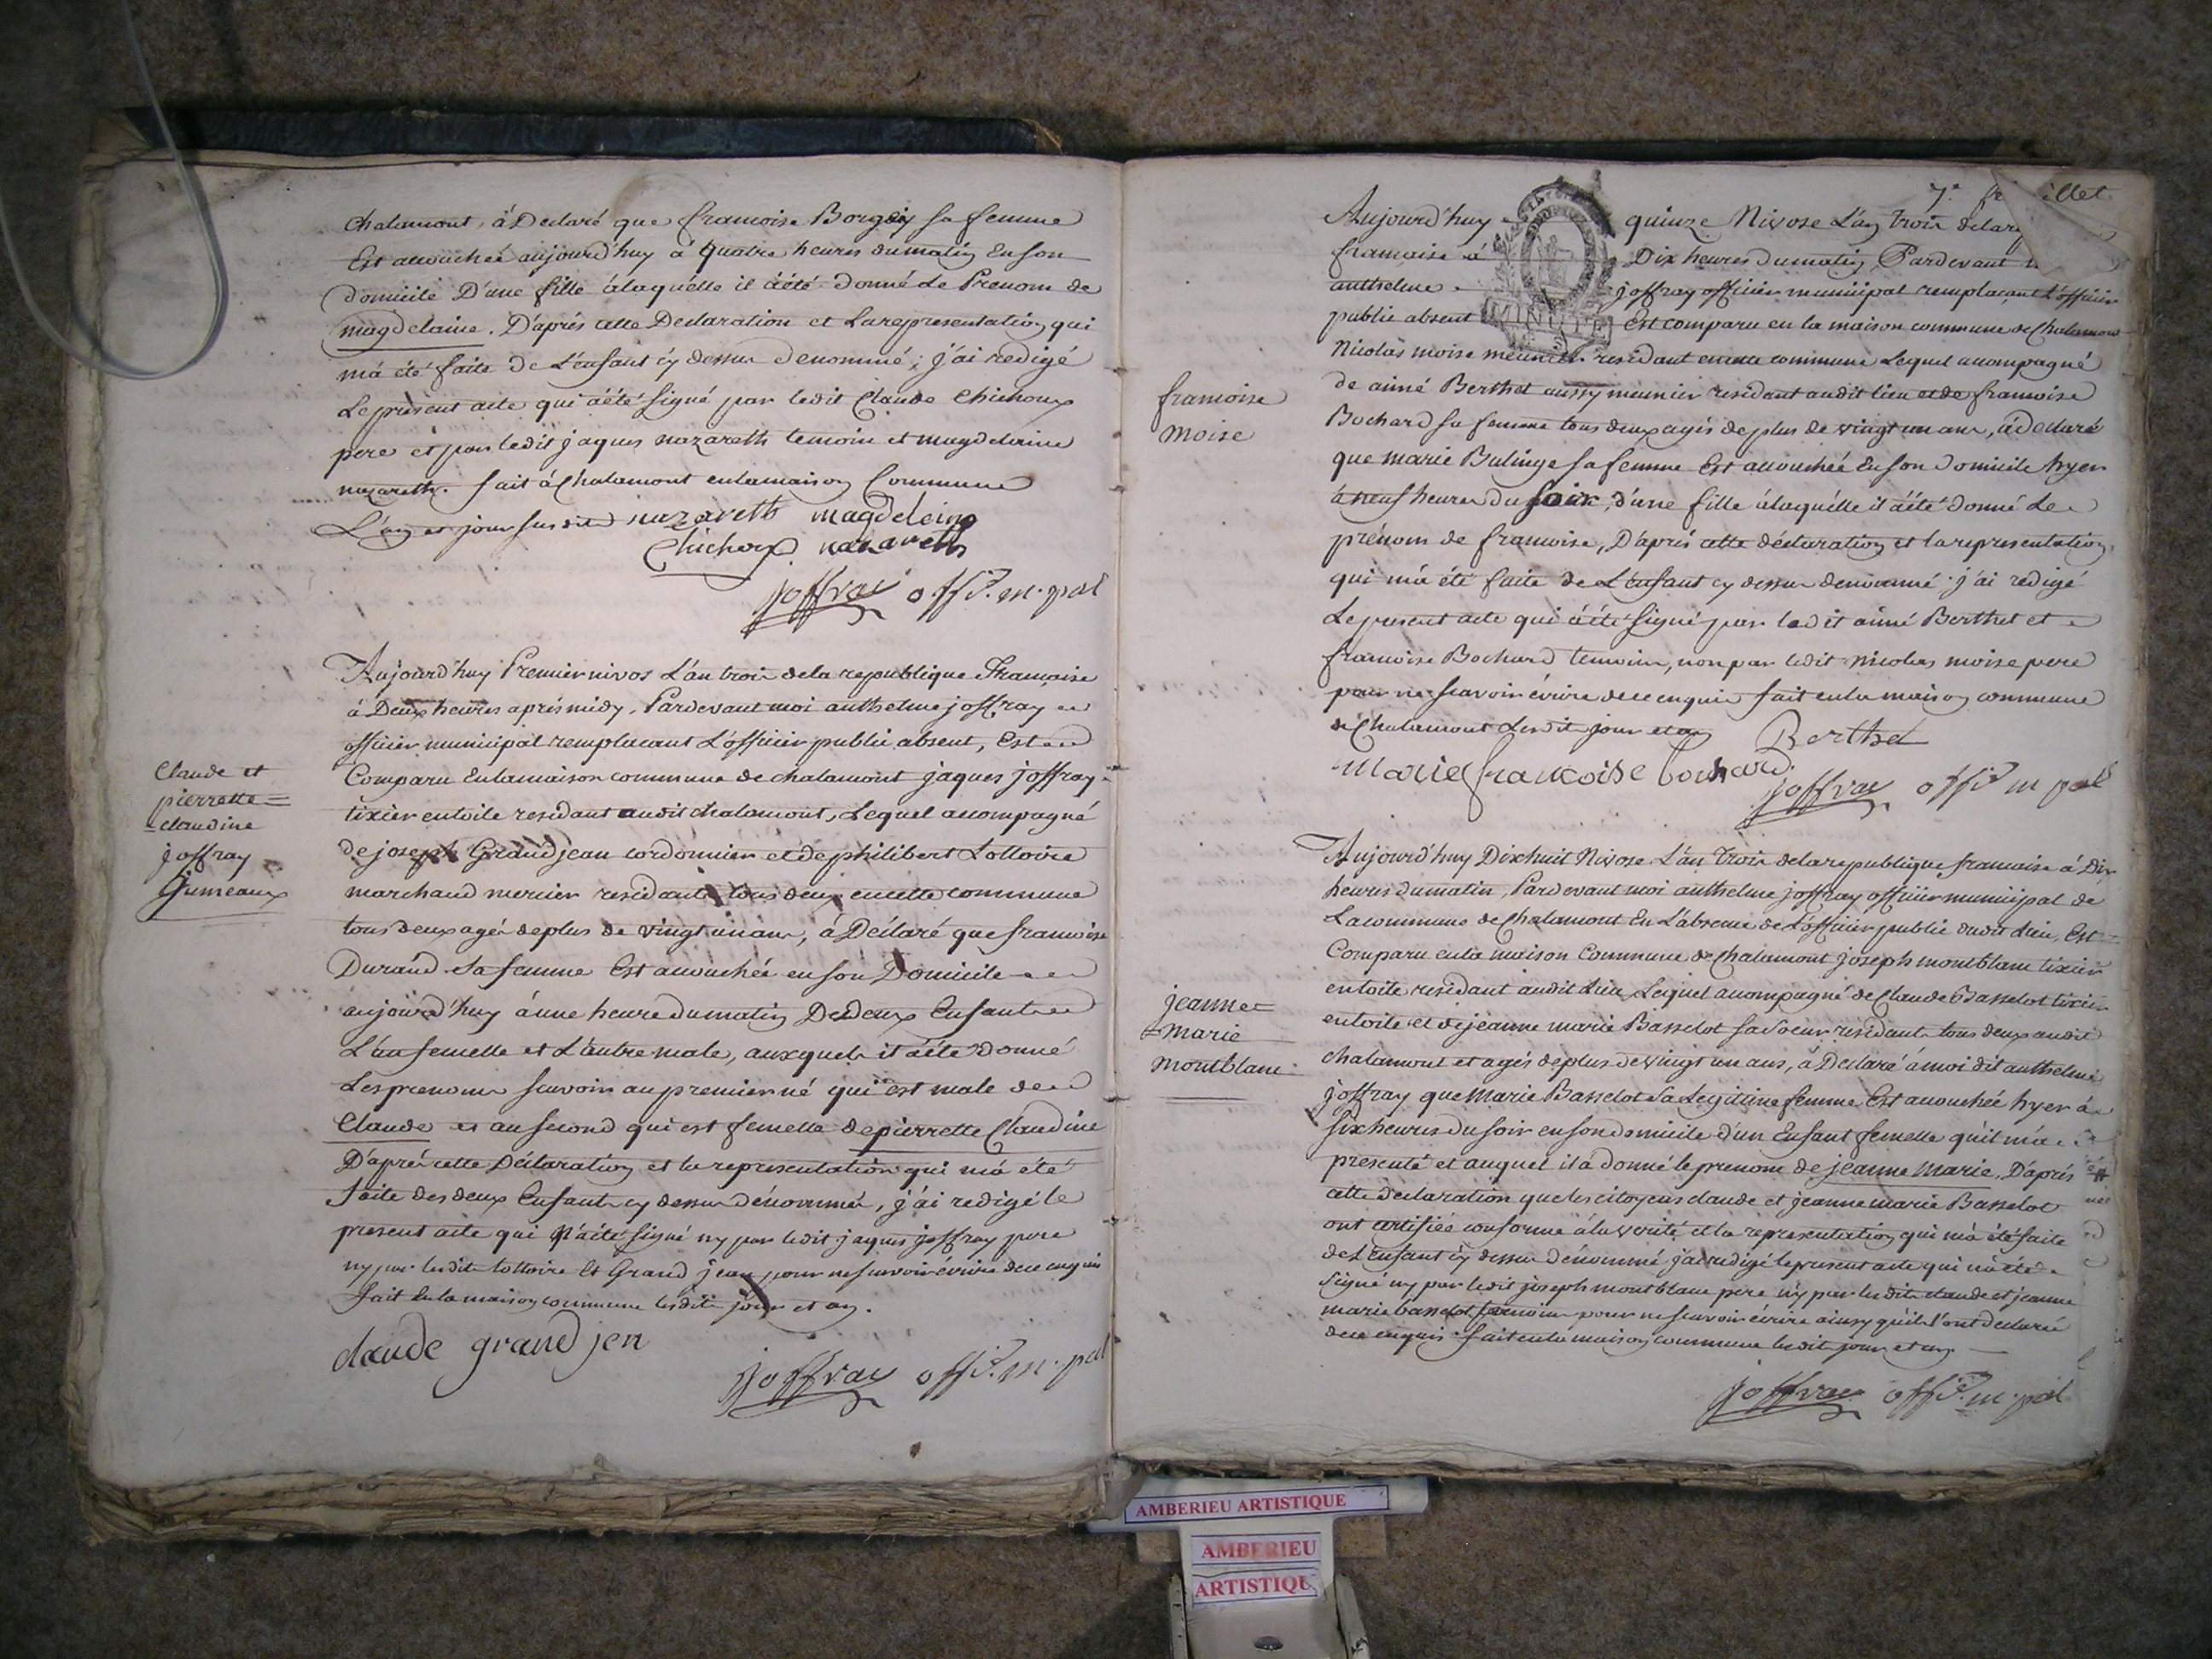 chalamont, à Declaré que francoise Borgey sa femme
Est accouchée aujourd'huy à quatre heures dumatin Enson
domicile D'une fille àlaquelle il àété donné Le Prenom de
magdelaine. D'aprés cette Declaration et Larepresentation qui
m'a été faite de L'enfant cy dessus denommé; j'ai redigé
Le présent acte qui àété signé par ledit Claude Chichoux
pere et par ledit jaques nazareth temoin et magdelaine
nazareth. fait à Chalamont enlamaison Commune
L'an et jour susdits nazareth magdeleine
Chichoux nazareth
joffray off.r m.pal
Claude et
pierrette=
claudine
joffray
Jumeaux
Aujourd'huy Premier nivos L'an trois dela republique Francaise
à Deux heures aprés midy. Pardevant moi anthelme joffray
officier municipal remplacant L'officier public absent, Est
Comparu Enlamaison commune de chalamont jaques joffray
tixier entoile residant audit chalamont, Lequel accompagné
de joseph Grandjean cordonnier et de philibert Lottoire
marchand mercier residants tous deux encette commune
tous deux agés deplus de vingt un ans, à Déclaré que francoise
Durand sa femme Est accouchée en son Domicile
aujourd'huy à une heure dumatin De deux Enfants
L'un femelle et L'autre male, auxquels il àété donné
Les prenoms scavoir au premier né qui est male de
Claude et au second qui est femelle de pierrette Claudine
D'aprés cette Déclaration et la representation qui m'a été
faite des deux Enfants cy dessus dénommés, j'ai redigé le
present acte qui n'àété signé ny par ledit jaques joffray pere
ny par lesdits Lottoire Et Grand jean pour ne scavoir écrire dece enquis
fait Enla maison commune lesdits jour et an.
claude grand jen
joffray off.r m.pal
7.e fe illet
Aujourd'huy quinze Nivose L'an trois dela
francaise à Dix heures dumatin, Pardevant
anthelme joffray officier municipal remplacant L'officier
public absent MINUTE Est comparu en la maison commune de Chalamont
Nicolas moise meunier residant en cette commune Lequel accompagné
de aimé Berthet aussy meunier residant audit lieu et de francoise
Bochard sa femme tous deux agés de plus de vingt un ans, à Declaré
que marie Bulinge sa femme Est accouchée Enson domicile hyer
à neuf heures du soir, d'une fille àlaquelle il àété donné Le
prénom de francoise, D'aprés cette déclaration et la representation
qui m'a été faite de L'enfant cy dessus denommé j'ai redigé
Le present acte qui àété signé par ledit aimé Berthet et
francoise Bochard temoins, non par ledit nicolas moise pere
pour ne scavoir écrire dece enquis fait enla maison commune
de Chalamont lesdits jour et an Berthet
marie francoise bochard
joffray off.r m pal
francoise
moise
Aujourd'huy Dixhuit Nivose L'an Trois dela republique francaise à Dix
heures dumatin, Pardevant moi anthelme joffray officier municipal de
La commune de Chalamont En L'absence de L'officier public dudit Lieu, Est
Comparu enla maison Commune de Chalamont joseph montblanc tixier
entoile residant audit Lieu, Lequel accompagné de Claude Basselot tixier
entoile et de jeanne marie Basselot sa soeur residants tous deux audit
Chalamont et agés deplus de vingt un ans, à Declaré à moi dit anthelme
joffray que Marie Basselot sa Legitime femme Est accouchée hyer à
six heures du soir en son domicile d'un Enfant femelle qu'il m'a
presenté et auquel il à donné le prenom de jeanne marie. D'aprés
cette declaration que les citoyens claude et jeanne marie Basselot
ont certifiée conforme à la verité et la representation qui m'a été faite
de L'enfant cy dessus dénommé j'ai redigé le present acte qui n'à été
signé ny par ledit joseph montblanc pere ny par lesdits claude et jeanne
marie basselot temoins pour ne scavoir écrire ainsy qu'ils l'ont declaré
dece enquis. fait enla maison commune lesdits jour et an.
joffray off.r m.pal
jeanne=
Marie
Montblanc
AMBERIEU ARTISTIQUE
AMBERIEU
ARTISTIQUE